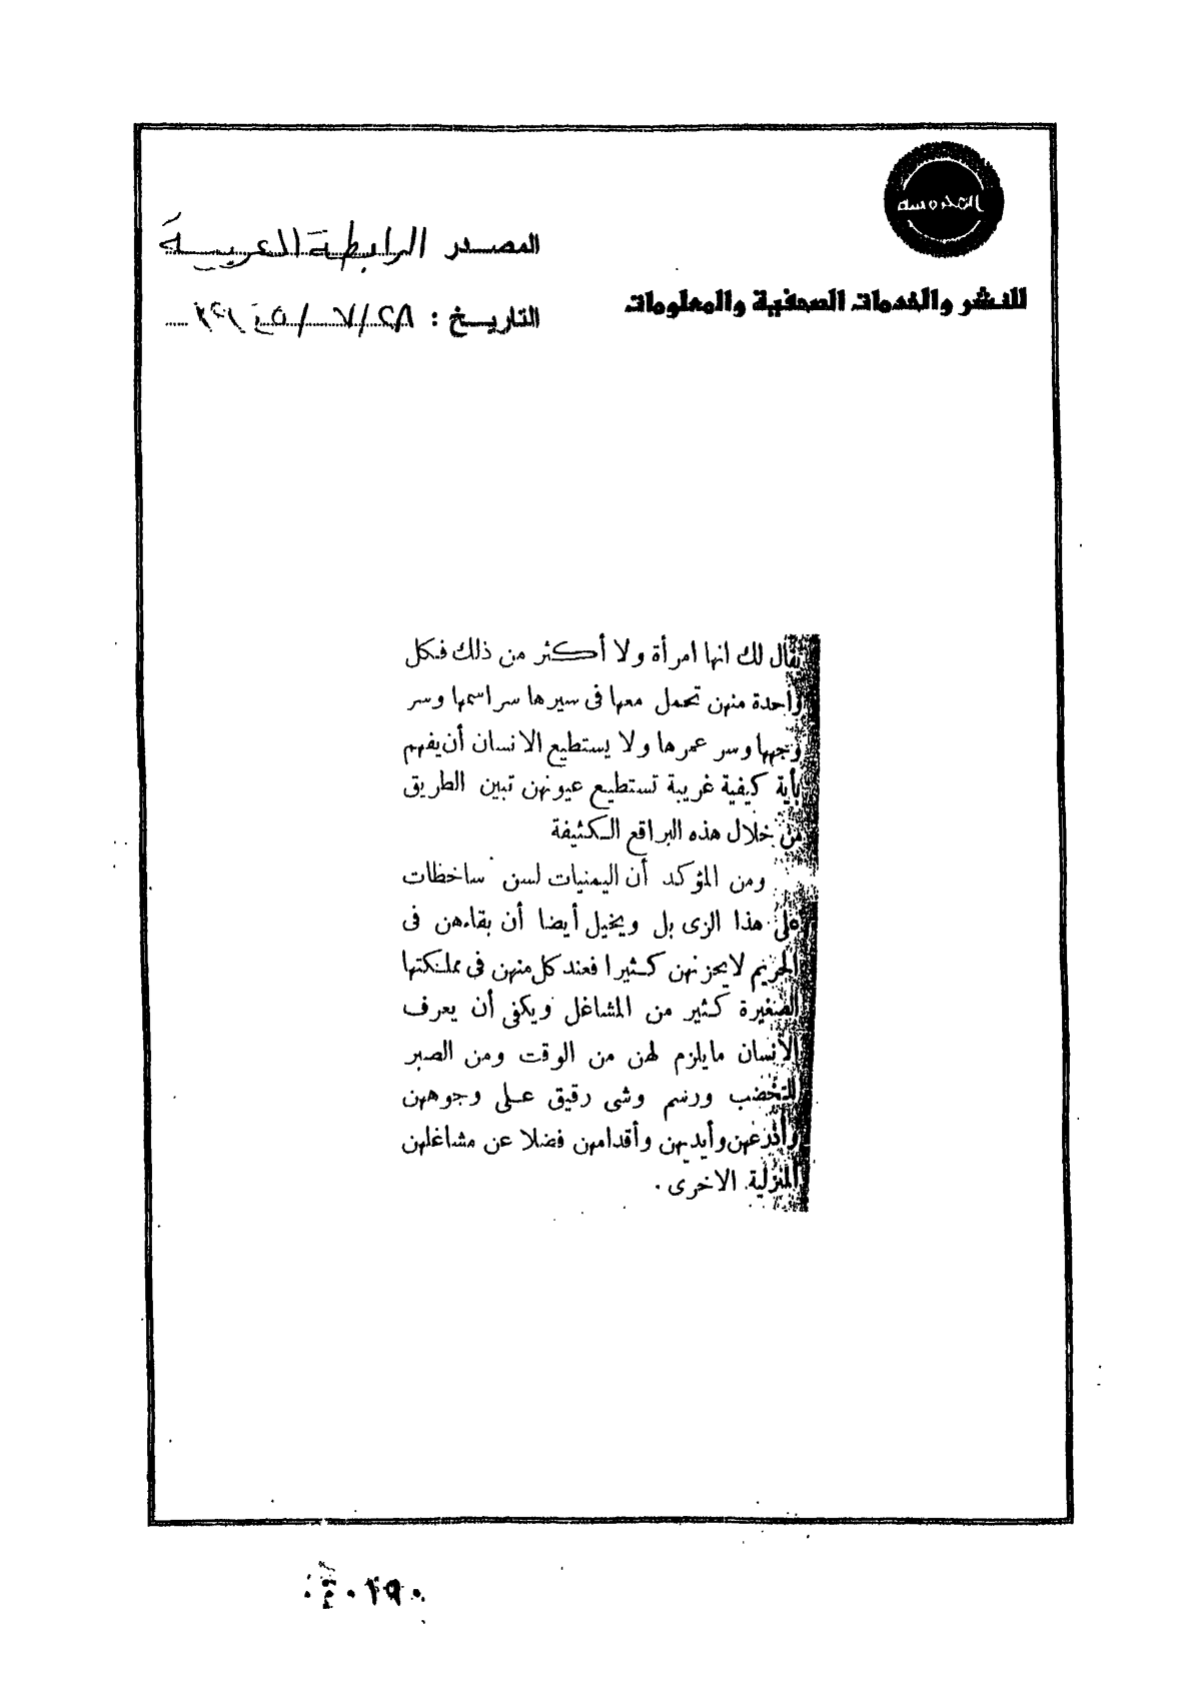 المحروسة
للنشر والخدمات الصحفية والمعلومات
المصدر الرابطة العربية
التاريخ : ٢٨/٧/
يقال لك انها امرأة ولا أكثر من ذلك فكل
واحدة منهن تحمل معها فى سيرها سر اسمها وسر
وجهها وسر عمرها ولا يستطيع الانسان أن يفهم
بأية كيفية غريبة تستطيع عيونهن تبين الطريق
من خلال هذه البراقع الكثيفة
ومن المؤكد أن اليمنيات لسن ساخطات
على هذا الزى بل ويخيل أيضا أن بقاءهن فى
الحريم لا يحزنهن كثيرا فعند كل منهن فى مملكتها
الصغيرة كثير من المشاغل ويكفى أن يعرف
الانسان ما يلزم لهن من الوقت ومن الصبر
للتخضب ورسم وشى رقيق على وجوههن
وأذرعهن وأيديهن وأقدامهن فضلا عن مشاغلهن
المنزلية الاخرى .